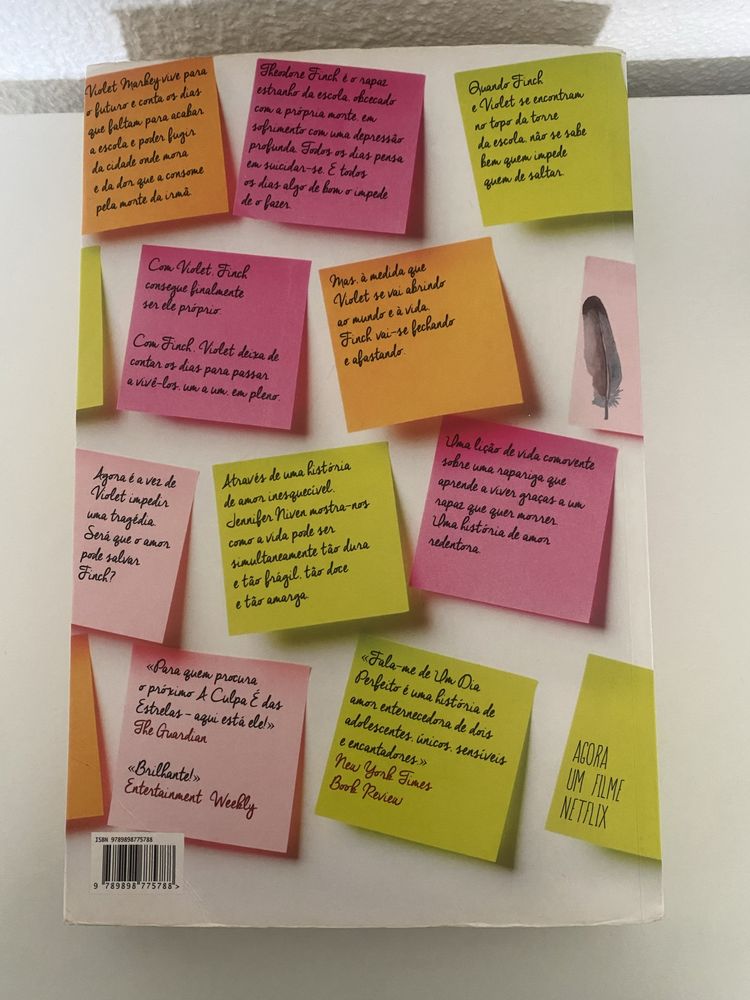 Violet Markey vive para
o futuro e conta os dias
que faltam para acabar
a escola e poder fugir
da cidade onde mora
e da dor que a consome
pela morte da irmã.
Theodore Finch é o rapaz
estranho da escola, obcecado
com a própria morte, em
sofrimento com uma depressão
profunda. Todos os dias pensa
em suicidar-se. E todos
os dias algo de bom o impede
de o fazer.
Quando Finch
e Violet se encontram
no topo da torre
da escola, não se sabe
bem quem impede
quem de saltar.
Com Violet, Finch
consegue finalmente
ser ele próprio.
Com Finch, Violet deixa de
contar os dias para passar
a vivê-los, um a um, em pleno.
Mas, à medida que
Violet se vai abrindo
ao mundo e à vida,
Finch vai-se fechando
e afastando.
Agora é a vez de
Violet impedir
uma tragédia.
Será que o amor
pode salvar
Finch?
Através de uma história
de amor inesquecível,
Jennifer Niven mostra-nos
como a vida pode ser
simultaneamente tão dura
e tão frágil, tão doce
e tão amarga.
Uma lição de vida comovente
sobre uma rapariga que
aprende a viver graças a um
rapaz que quer morrer.
Uma história de amor
redentora.
«Para quem procura
o próximo A Culpa É das
Estrelas – aqui está ele!»
The Guardian
«Brilhante!»
Entertainment Weekly
«Fala-me de Um Dia
Perfeito é uma história de
amor enternecedora de dois
adolescentes, únicos, sensíveis
e encantadores.»
New York Times
Book Review
AGORA
UM FILME
NETFLIX
ISBN 9789898775788
9 789898 775788 >